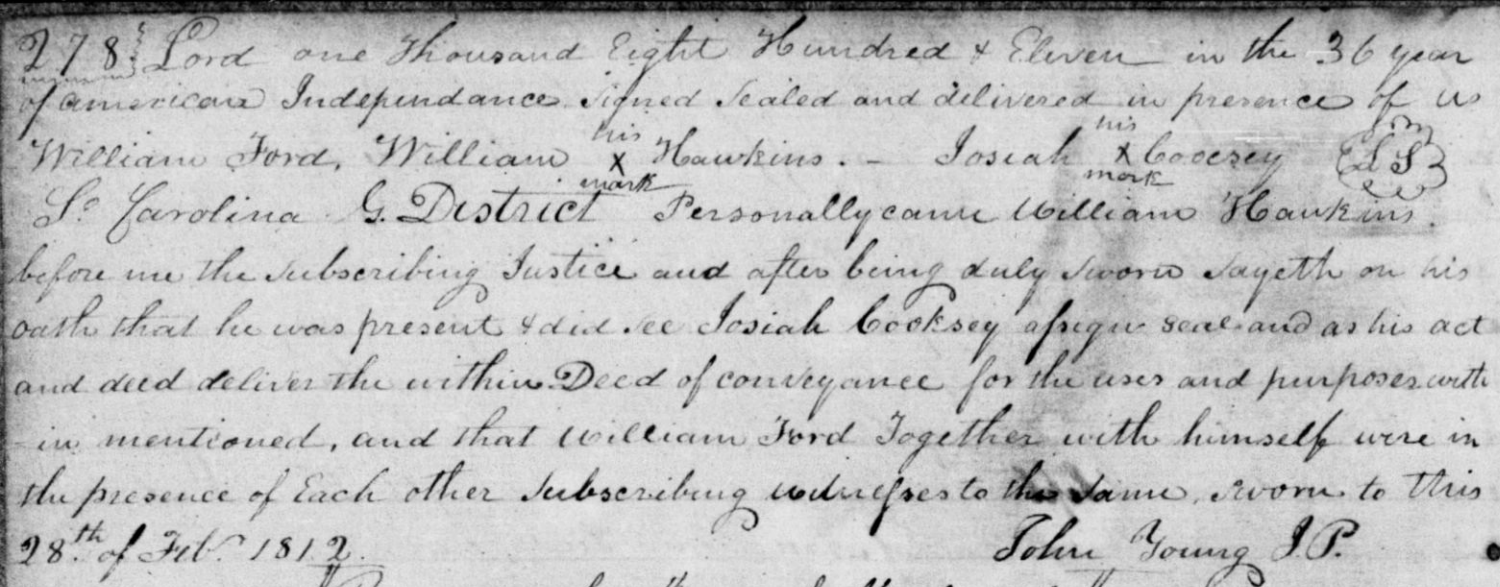 278 Lord one Thousand Eight Hundred & Eleven in the 36 year
of american Independance signed sealed and delivered in presence of us
William Ford, William his X mark Hawkins. – Josiah his X mark Coocsey L S
So Carolina G. District Personally came William Hawkins
before me the subscribing Justice and after being duly sworn sayeth on his
oath that he was present & did see Josiah Cooksey assign seal and as his act
and deed deliver the within Deed of conveyance for the uses and purposes with
in mentioned, and that William Ford Together with himself were in
the presence of Each other subscribing witnesses to the same, sworn to this
28th of Feb. 1812. John Young J.P.